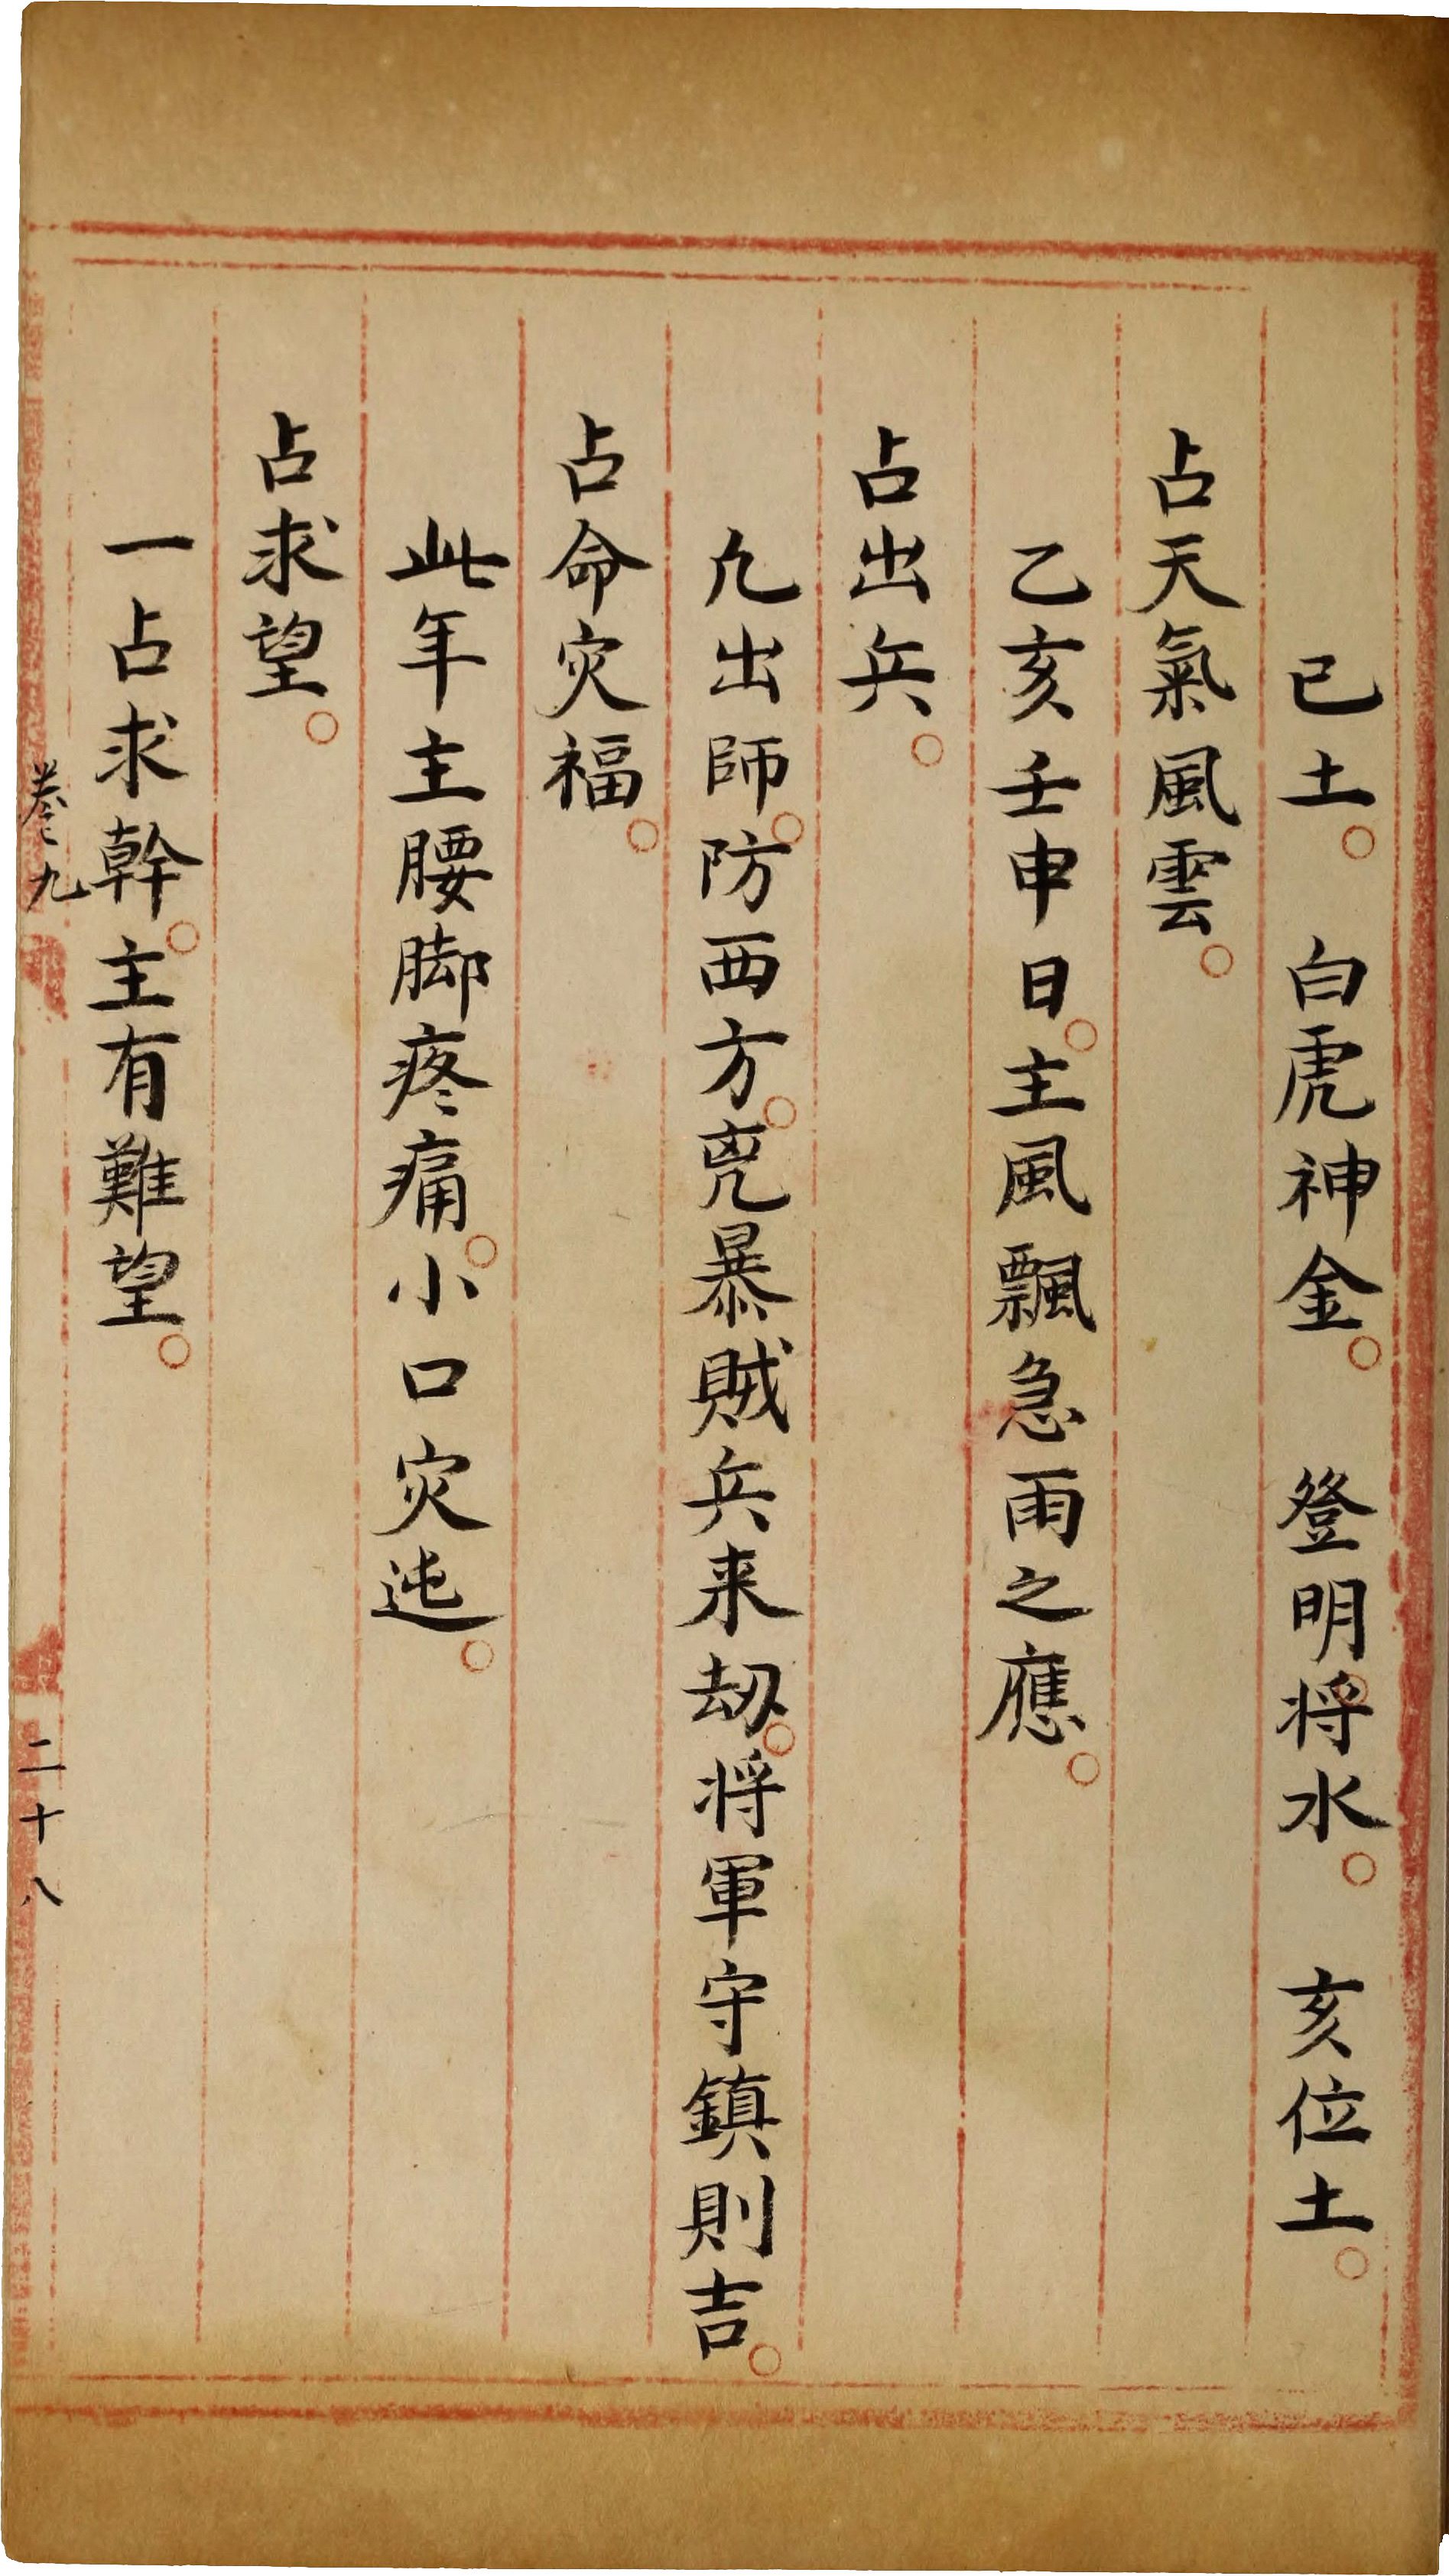 已土。　白虎神金。　登明将水。　亥位土。
占天氣風雲。
乙亥壬申日。主風飄急雨之應。
占出兵。
凢出師。防西方。兇暴賊兵来刼。将軍守鎮則吉。
占命灾福。
此年主腰脚疼痛。小口灾迍。
占求望。
一占求幹。主有難望。
卷九
二十八